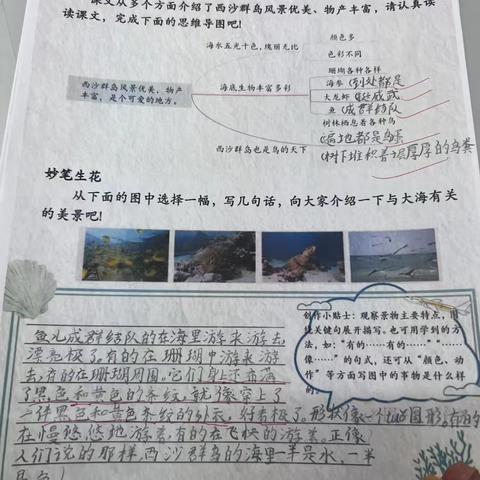 课文从多个方面介绍了西沙群岛风景优美、物产丰富，请认真读
读课文，完成下面的思维导图吧!
颜色多
海水五光十色，瑰丽无比
色彩不同
珊瑚各种各样
西沙群岛风景优美、物产
丰富，是个可爱的地方。
海底生物丰富多彩
海参 到处都是
大龙虾 挺威武
鱼 成群结队
树林栖息着各种鸟
遍地都是鸟蛋
西沙群岛也是鸟的天下
树下堆积着一层厚厚的鸟粪
妙笔生花
从下面的图中选择一幅，写几句话，向大家介绍一下与大海有关
的美景吧!
创作小贴士：观察景物主要特点，围
绕关键句展开描写。也可用学到的方
法，如：“有的……有的……”“
像……”的句式，还可从“颜色、动
作”等方面写图中的事物是什么样
的。
鱼儿成群结队的在海里游来游去，
漂亮极了。有的在珊瑚中游来游
去，有的在珊瑚周围。它们身上还布满
了黑色和黄色的条纹，就像穿上了
一件黑色和黄色条纹的外衣，好看极了。形状像一个圆形。有的
在慢悠悠地游去，有的在飞快的游去。正像
人们说的那样，西沙群岛的海里一半是水，一半
是鱼！